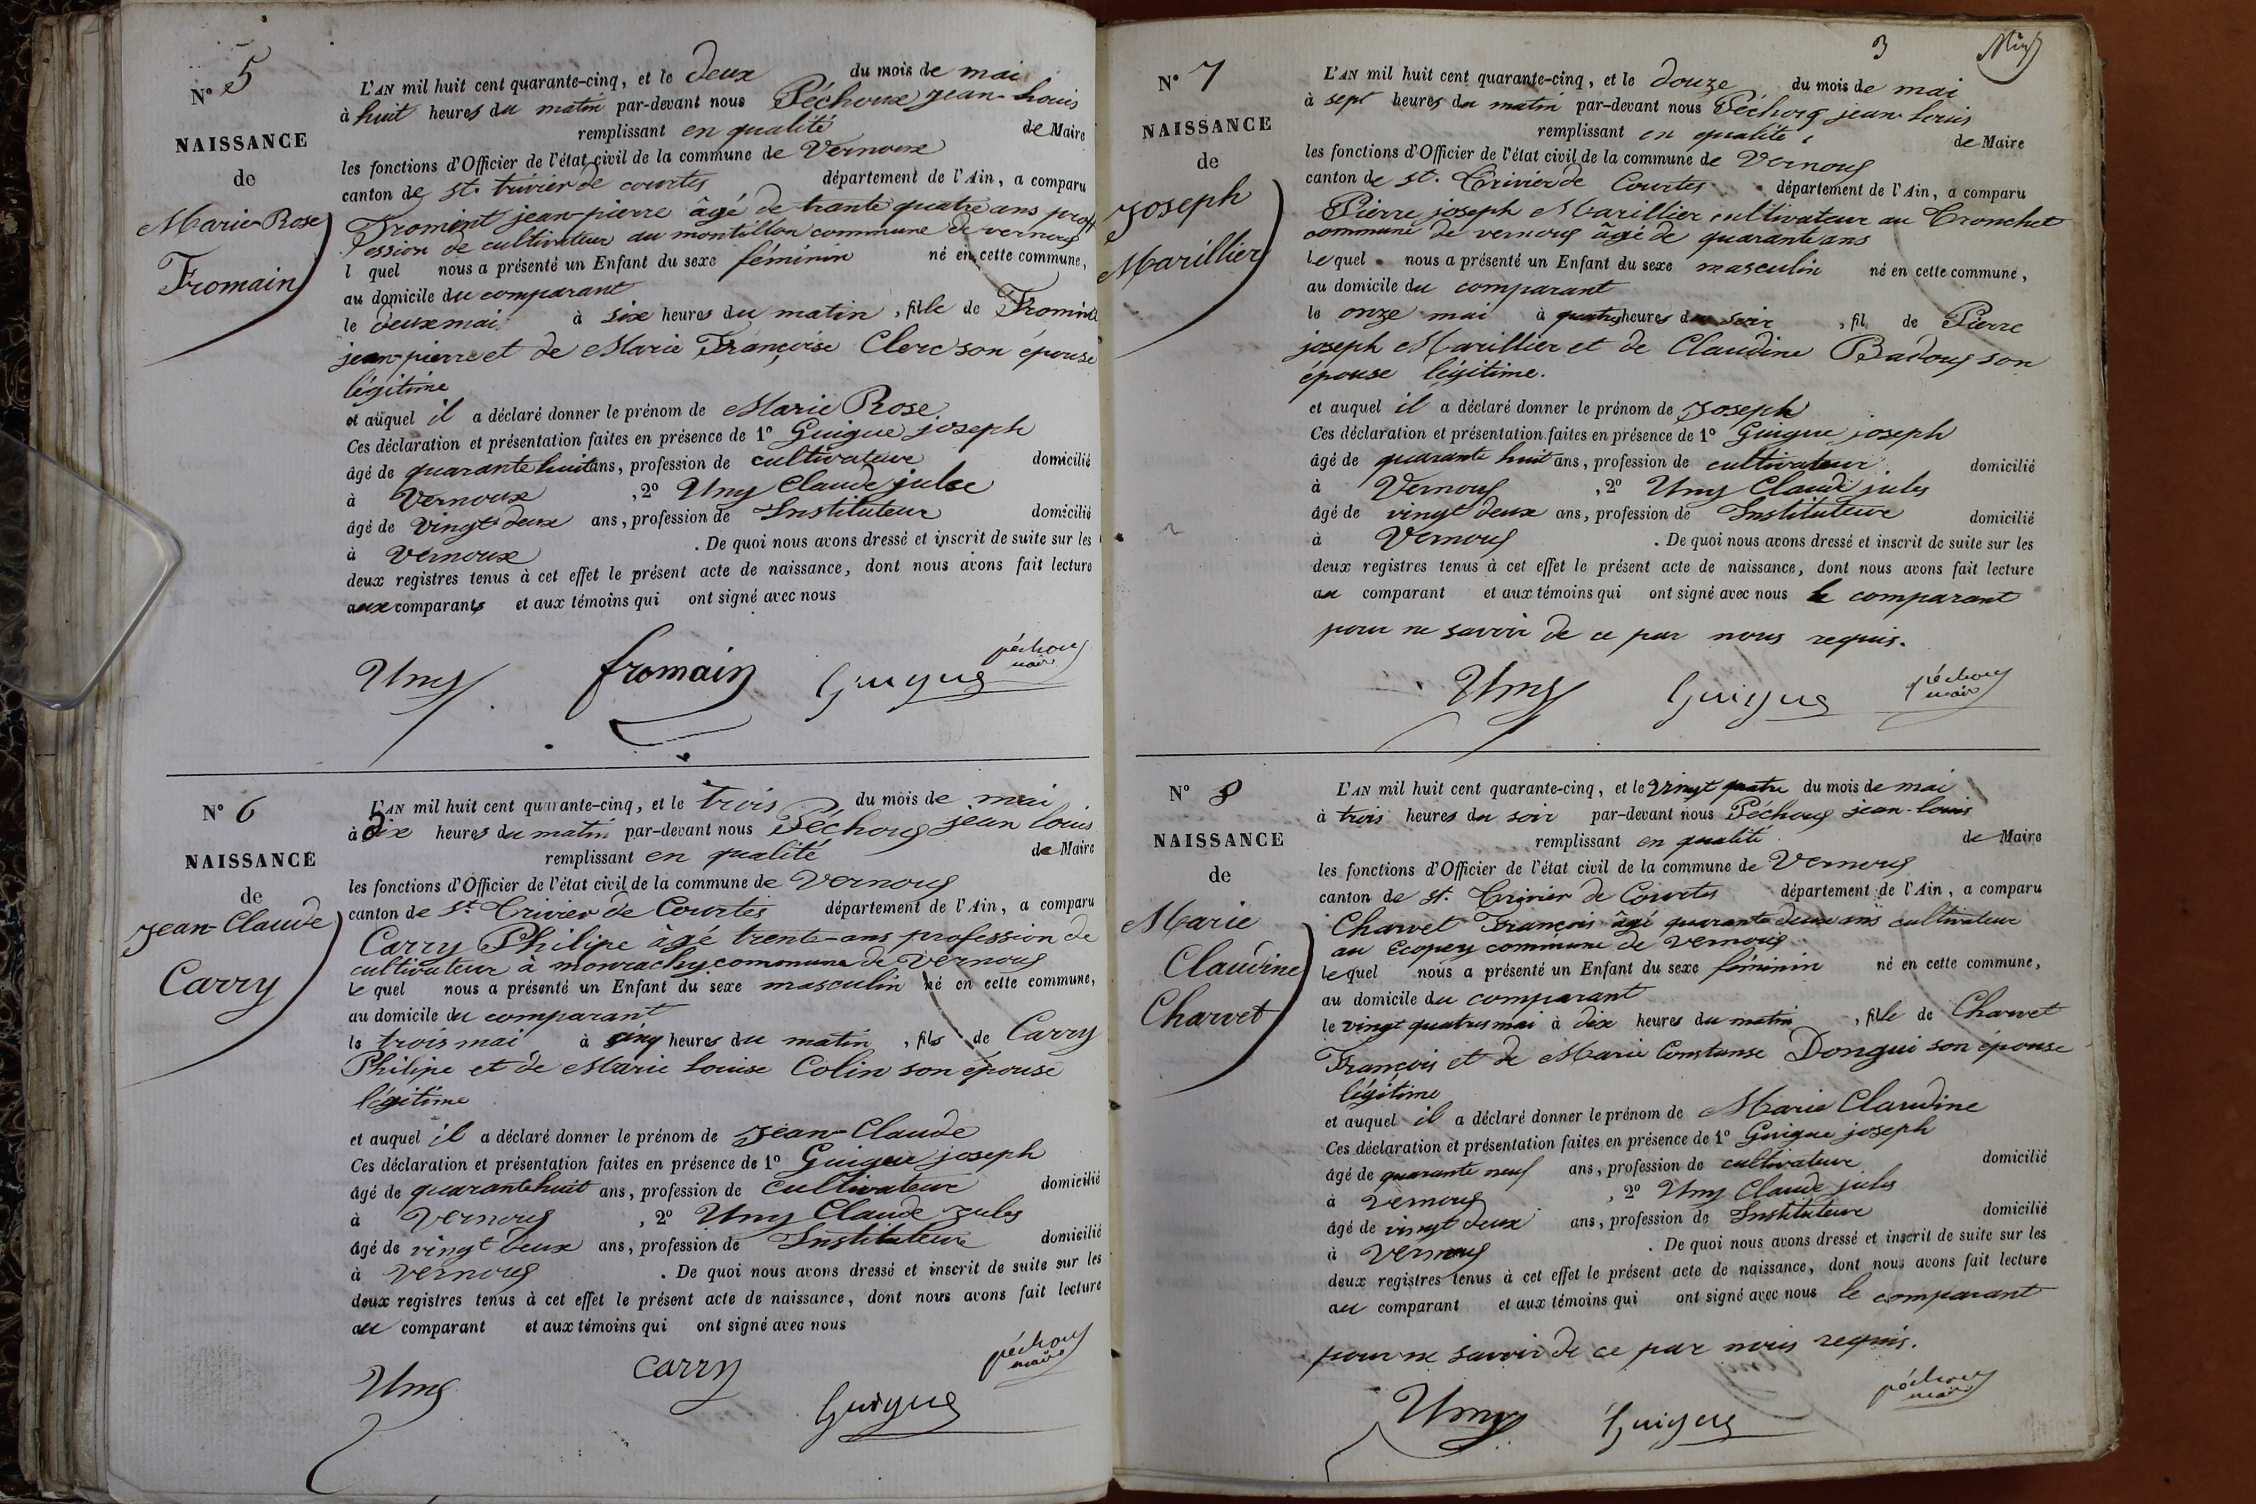 N° 5
NAISSANCE
de
Marie-Rose
Fromain
L'AN mil huit cent quarante-cinq, et le deux du mois de mai
à huit heures du matin par-devant nous Péchoux jean-Louis
remplissant en qualité de Maire
les fonctions d'Officier de l'état civil de la commune de Vernoux
canton de st. trivier de courtes département de l'Ain, a comparu
Froment jean-pierre âgé de trante quatre ans proff
fession de cultivateur au montillon commune de vernoux
l quel nous a présenté un Enfant du sexe féminin né en cette commune,
au domicile du comparant
le deux mai à six heures du matin, fille de Froment
jean-pierre et de Marie Françoise Clerc son épouse
légitime
et auquel il a déclaré donner le prénom de Marie Rose
Ces déclaration et présentation faites en présence de 1° Guigue joseph
âgé de quarante huit ans, profession de cultivateur domicilié
à Vernoux, 2° Uny Claude jules
âgé de vingt deux ans, profession de Instituteur domicilié
à Vernoux. De quoi nous avons dressé et inscrit de suite sur les
deux registres tenus à cet effet le présent acte de naissance, dont nous avons fait lecture
aux comparants et aux témoins qui ont signé avec nous
Uny fromain Guigue péchoux maire
N° 6
NAISSANCE
de
Jean-Claude
Carry
L'AN mil huit cent quarante-cinq, et le trois du mois de mai
à dix heures du matin par-devant nous Péchoux jean louis
remplissant en qualité de Maire
les fonctions d'Officier de l'état civil de la commune de Vernoux
canton de St. Trivier de Courtes département de l'Ain, a comparu
Carry Philipe âgé trente-ans profession de
cultivateur à monrachy commune de Vernoux
le quel nous a présenté un Enfant du sexe masculin né en cette commune,
au domicile du comparant
le trois mai à cinq heures du matin, fils de Carry
Philipe et de Marie Louise Colin son épouse
légitime
et auquel il a déclaré donner le prénom de Jean-Claude
Ces déclaration et présentation faites en présence de 1° Guigue joseph
âgé de quarante huit ans, profession de Cultivateur domicilié
à Vernoux, 2° Uny Claude Jules
âgé de vingt deux ans, profession de Instituteur domicilié
à Vernoux. De quoi nous avons dressé et inscrit de suite sur les
deux registres tenus à cet effet le présent acte de naissance, dont nous avons fait lecture
au comparant et aux témoins qui ont signé avec nous
Uny carry Guigue péchoux maire
3
N° 7
NAISSANCE
de
Joseph
Marillier
L'AN mil huit cent quarante-cinq, et le douze du mois de mai
à sept heures du matin par-devant nous Péchoux jean-louis
remplissant en qualité de Maire
les fonctions d'Officier de l'état civil de la commune de Vernoux
canton de St. Trivier de Courtes département de l'Ain, a comparu
Pierre joseph Marillier cultivateur au Tronchet
commune de vernoux âgé de quarante ans
le quel nous a présenté un Enfant du sexe masculin né en cette commune,
au domicile du comparant
le onze mai à quatre heures du soir, fil de Pierre
joseph Marillier et de Claudine Badoux son
épouse légitime.
et auquel il a déclaré donner le prénom de Joseph
Ces déclaration et présentation faites en présence de 1° Guigue joseph
âgé de quarante huit ans, profession de cultivateur domicilié
à Vernoux, 2° Uny Claude jules
âgé de vingt deux ans, profession de Instituteur domicilié
à Vernoux. De quoi nous avons dressé et inscrit de suite sur les
deux registres tenus à cet effet le présent acte de naissance, dont nous avons fait lecture
au comparant et aux témoins qui ont signé avec nous le comparant
pour ne savoir de ce par nous requis.
Uny Guigue péchoux maire
N° 8
NAISSANCE
de
Marie
Claudine
Charvet
L'AN mil huit cent quarante-cinq, et le vingt quatre du mois de mai
à trois heures du soir par-devant nous Péchoux jean-louis
remplissant en qualité de Maire
les fonctions d'Officier de l'état civil de la commune de Vernoux
canton de st. Trivier de Courtes département de l'Ain, a comparu
Charvet François âgé quarante deux ans cultivateur
au Ecopey commune de Vernoux
le quel nous a présenté un Enfant du sexe féminin né en cette commune,
au domicile du comparant
le vingt quatres mai à dix heures du matin, fille de Charvet
François et de Marie Constanse Dongui son épouse
légitime
et auquel il a déclaré donner le prénom de Marie Claudine
Ces déclaration et présentation faites en présence de 1° Guigue joseph
âgé de quarante neuf ans, profession de cultivateur domicilié
à Vernoux, 2° Uny Claude jules
âgé de vingt deux ans, profession de Instituteur domicilié
à Vernoux. De quoi nous avons dressé et inscrit de suite sur les
deux registres tenus à cet effet le présent acte de naissance, dont nous avons fait lecture
au comparant et aux témoins qui ont signé avec nous le comparant
pour ne savoir de ce par nous requis.
Uny Guigue péchoux maire